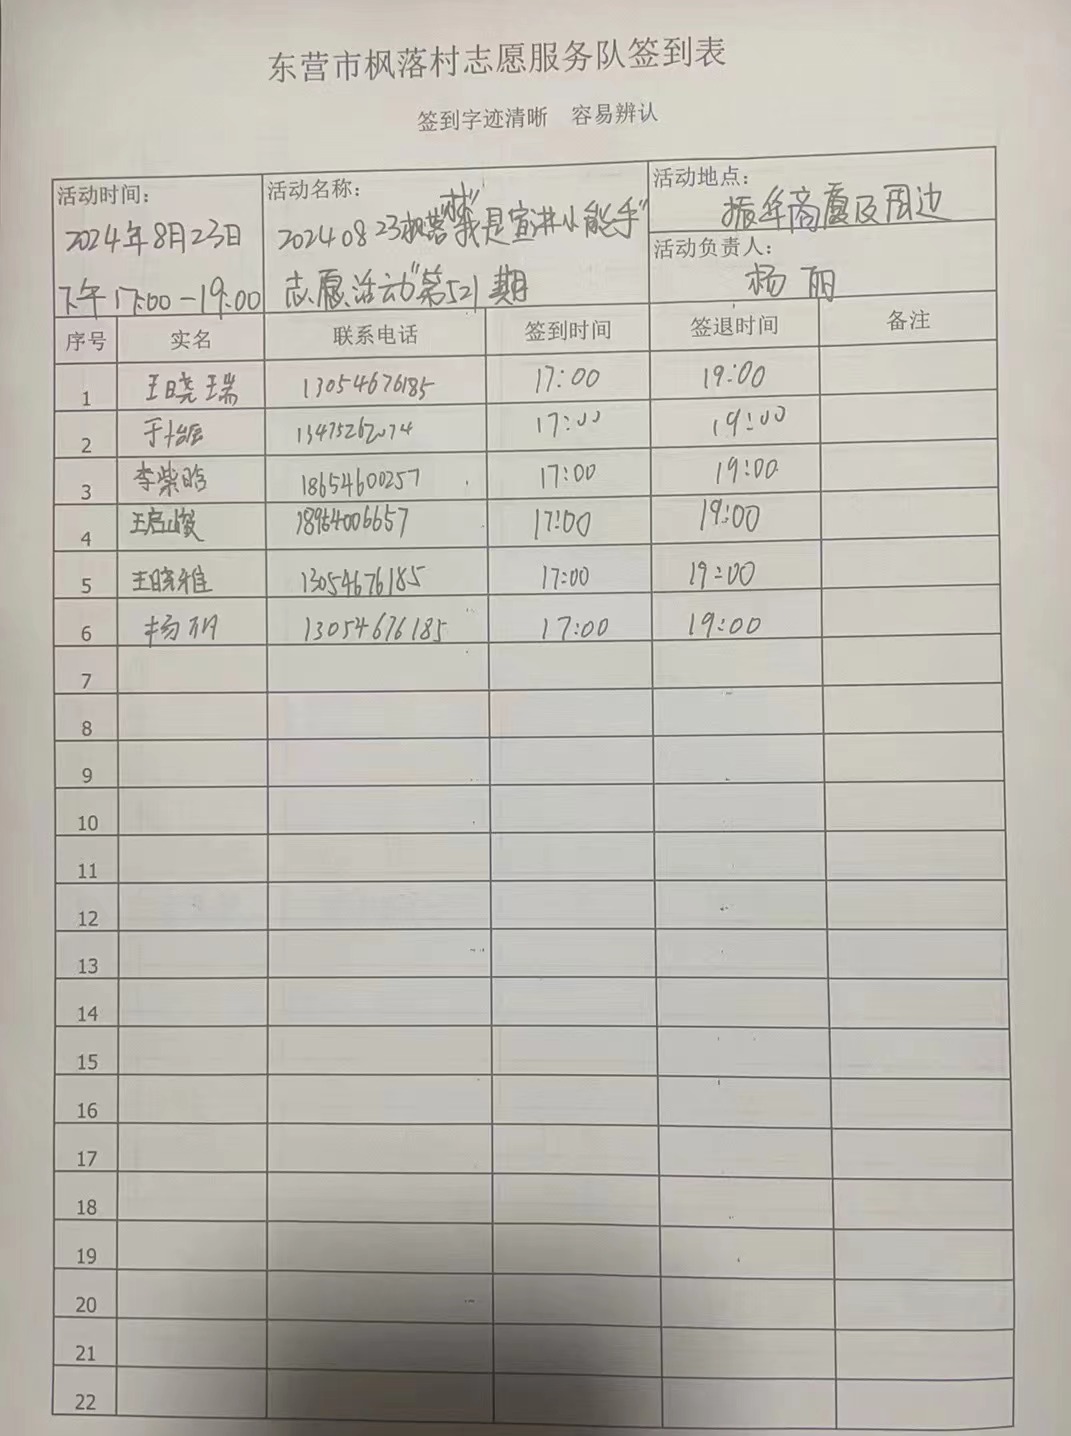 东营市枫落村志愿服务队签到表
签到字迹清晰 容易辨认
活动时间：
2024年8月23日
下午17:00-19:00
活动名称：
20240823枫落村"我是宣讲小能手"
志愿活动"第521期
活动地点：
振华商厦及周边
活动负责人：
杨丽
序号 实名 联系电话 签到时间 签退时间 备注
1 王晓瑞 13054676185 17:00 19:00
2 13475262074 17:00 19:00
3 李紫晗 18654600257 17:00 19:00
4 王启峻 17:00 19:00
5 王晓雅 13054676185 17:00 19:00
6 杨丽 13054676185 17:00 19:00
7
8
9
10
11
12
13
14
15
16
17
18
19
20
21
22